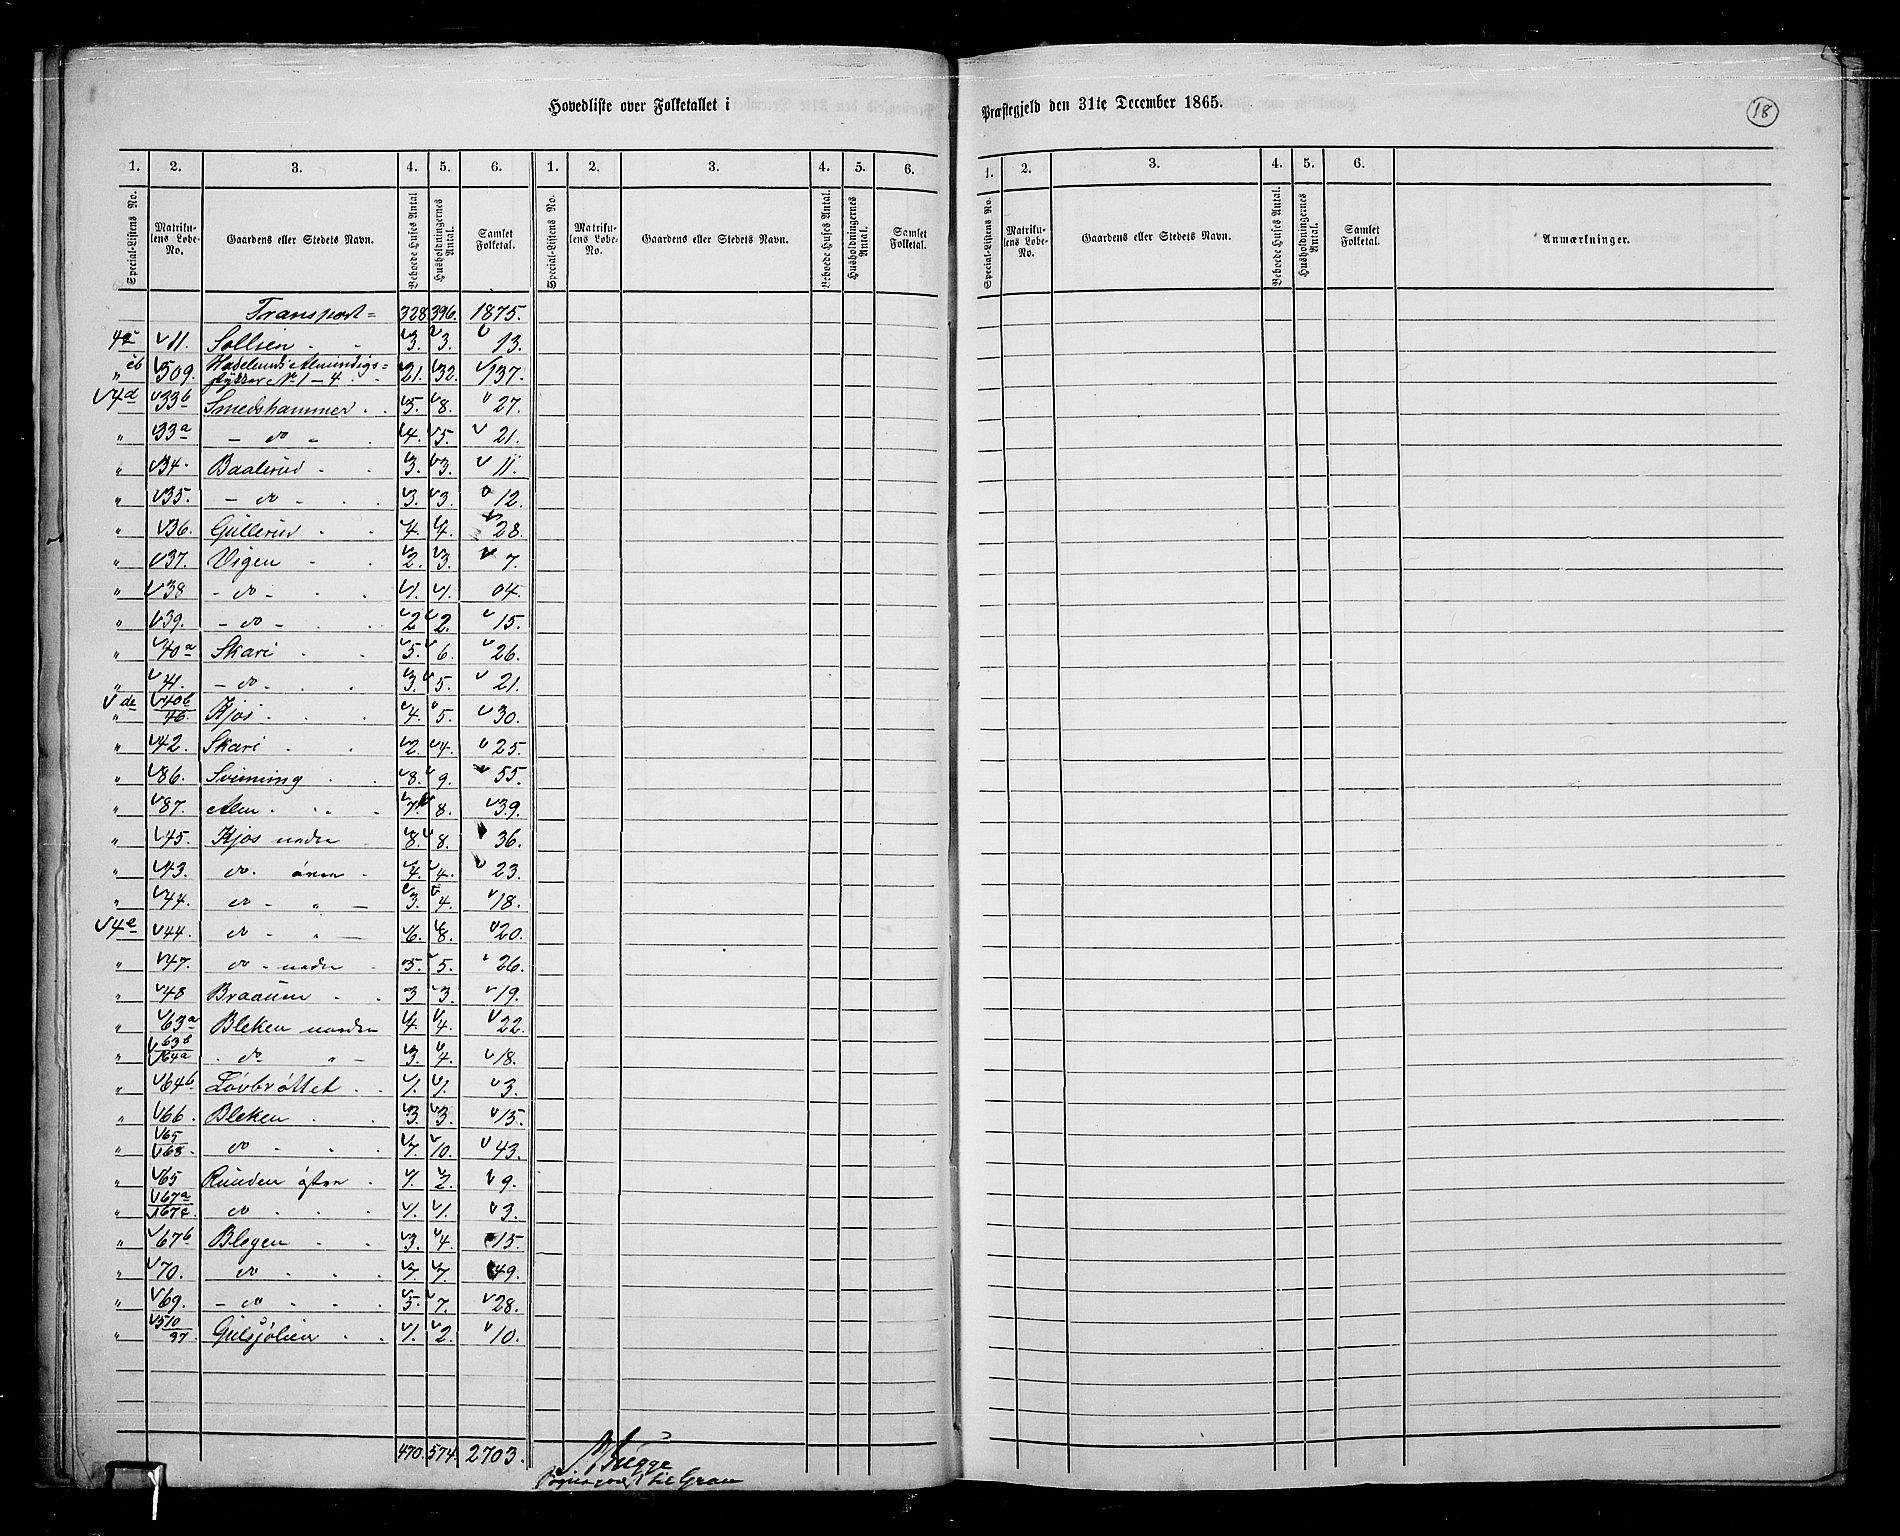 Hovedliste over Folketallet i Præstegjeld den 31te December 1865.
18
1. 2. 3. 4. 5. 6. 1. 2. 3. 4. 5. 6. 1. 2. 3. 4. 5. 6.
Special-Listens No. Matrikulens Løbe-No. Gaardens eller Stedets Navn. Beboede Huses Antal Husholdningernes Antal. Samlet Folketal. Special-Listens No. Matrikulens Løbe-No. Gaardens eller Stedets Navn. Beboede Huses Antal. Husholdningernes Antal. Samlet Folketal. Special-Listens No. Matrikulens Løbe-No. Gaardens eller Stedets Navn. Beboede Huses Antal. Husholdningernes Antal. Samlet Folketal. Anmærkninger.
Transport= 328 396. 1875.
4c 11. Sollien 3. 3. 13.
" cb 509. Hadelands Almindigs=
stykker No 1-4 21. 32. 137.
4d 33b Smedshammer 5. 8. 27.
" 33a - do - 4. 5. 21.
" 34. Baalerud 3. 3. 11.
" 35. - do - 3. 3. 12.
" 36. Gullerud 4. 4. 28.
" 37. Vigen 2. 3. 7.
" 38 - do - 1. 1. 04.
" 39. - do - 2 2. 15.
" 40a Skari 5. 6. 26.
" 41. - do - 3. 5. 21.
de " 40b/46. Kjos 4. 5. 30.
" 42. Skari 2. 4. 25.
" 86. Svinning 8. 9. 55.
" 87. Alm 7. 8. 39.
" 45. Kjos nedre 8. 8. 36.
" 43. do. øvre 4. 4. 23.
" 44. do - " - 3. 4. 18.
4e 44. do - " - 6. 8. 20.
" 47. do - nedre 5. 5. 26.
" 48 Braaum 3 3. 19.
" 63a Bleken nordre 4. 4. 22.
" 63b/64a do " - 3. 4. 18.
" 64b Løvbrøttet 1. 1. 3.
" 66. Bleken 3. 3. 15.
" 65/68. do 7. 10. 43.
" 65 Runden østre 1. 2. 9.
" 67a/67c. do 1. 1. 3.
" 67b Blegen 3. 4. 15.
" 70. do 7. 7. 49.
" 69. - do 5. 7. 28.
" 510/97. Gulsjølien 1. 2. 10.
470. 574. 2703.
Bugge
Sognepræst til Gran